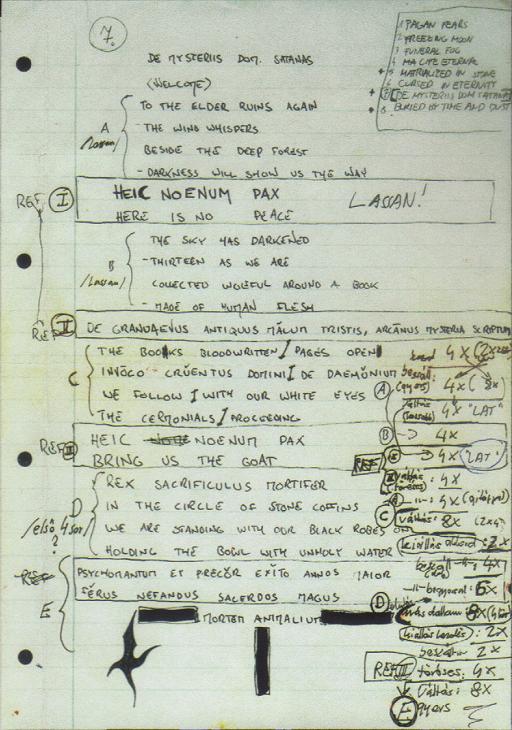 7.
1 PAGAN FEARS
2 FREEZING MOON
3 FUNERAL FOG
4 MA LIFE ETERNAL
5 MATRIALIZED IN STONE
6 CURSED IN ETERNITY
7 DE MYSTERIIS DOM SATANAS
8. BURIED BY TIME AND DUST
DE MYSTERIIS DOM. SATANAS
(WELCOME)
TO THE ELDER RUINS AGAIN
- THE WIND WHISPERS
A
/lassan/
BESIDE THE DEEP FOREST
- DARKNESS WILL SHOW US THE WAY
REF I HEIC NOENUM PAX LASSAN!
HERE IS NO PEACE
THE SKY HAS DARKENED
- THIRTEEN AS WE ARE
B
/lassan/
COLLECTED WOLEFUL AROUND A BOOK
- MADE OF HUMAN FLESH
REF II DE GRANDAEVUS ANTIQUUS MULUM TRISTIS, ARCANUS MYSTERIA SCRIPTUM
THE BOOKS BLOODWRITTEN / PAGES OPEN
C INVOCO CRUENTUS DOMINI / DE DAEMONIUM
WE FOLLOW / WITH OUR WHITE EYES
THE CERMONIALS / PROCEEDING
REF III HEIC NOENUM PAX
BRING US THE GOAT
REX SACRIFICULUS MORTIFER
D
/első 4 sor/
?
IN THE CIRCLE OF STONE COFFINS
WE ARE STANDING WITH OUR BLACK ROBES ON
HOLDING THE BOWL WITH UNHOLY WATER
REF
PSYCHOMANTUM ET PRECOR EXITO ANNOS MAIOR
E FERUS NEFANDUS SACERDOS MAGUS
MORTEM ANIMALIUM
4X
A
4X (8X)
4X "LAT"
B 4X
REF 4X "LAT"
váltás: 4X
4X
C váltás: 8X
2X
4X
6X
D
8X
2X
2X
REF III 4X
váltás: 8X
E gyors